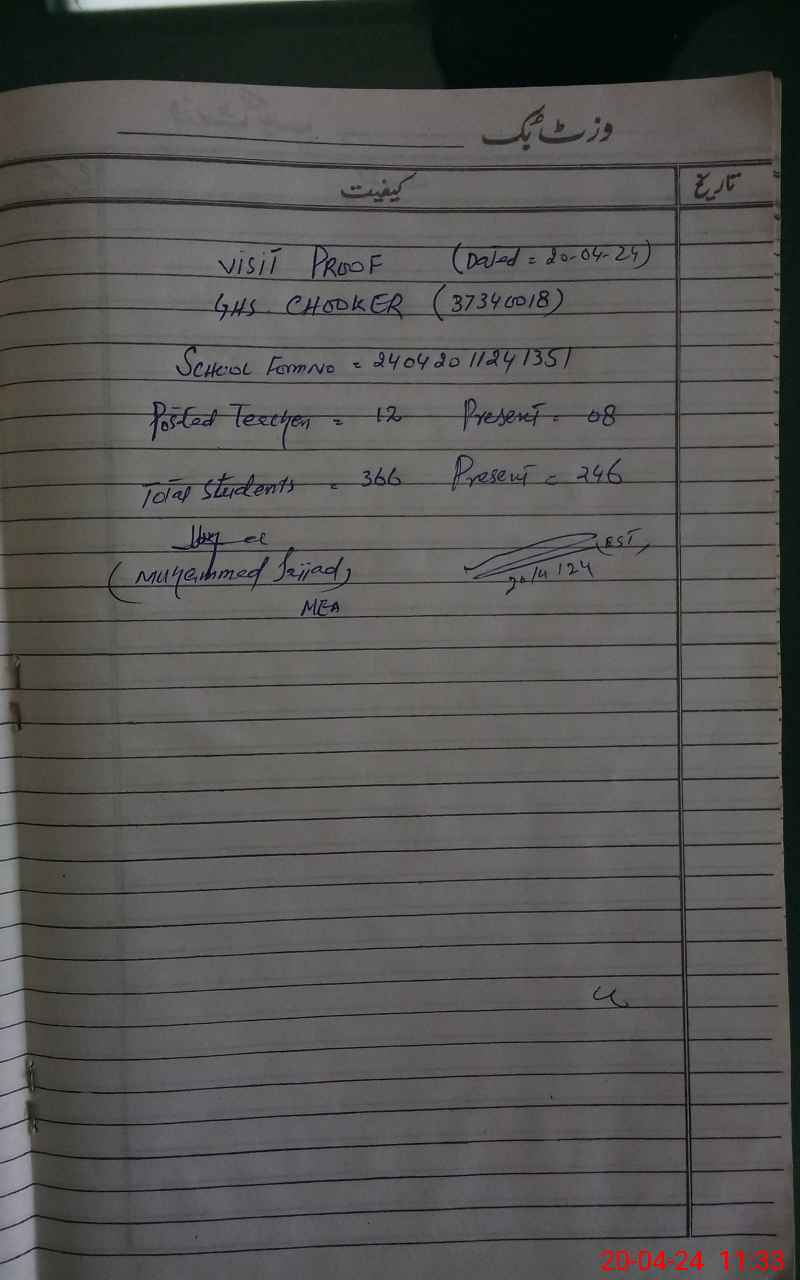 وزٹ بک
کیفیت تاریخ
VISIT PROOF (Dated = 20-04-24)
GHS. CHOOKER (37340018)
SCHOOL Form No = 24042011241351
Posted Teecher = 12 Present = 08
Total Students = 366 Present = 246
(Muhammed Sajjad)
MEA
(EST)
20/4/24
20-04-24 11:33